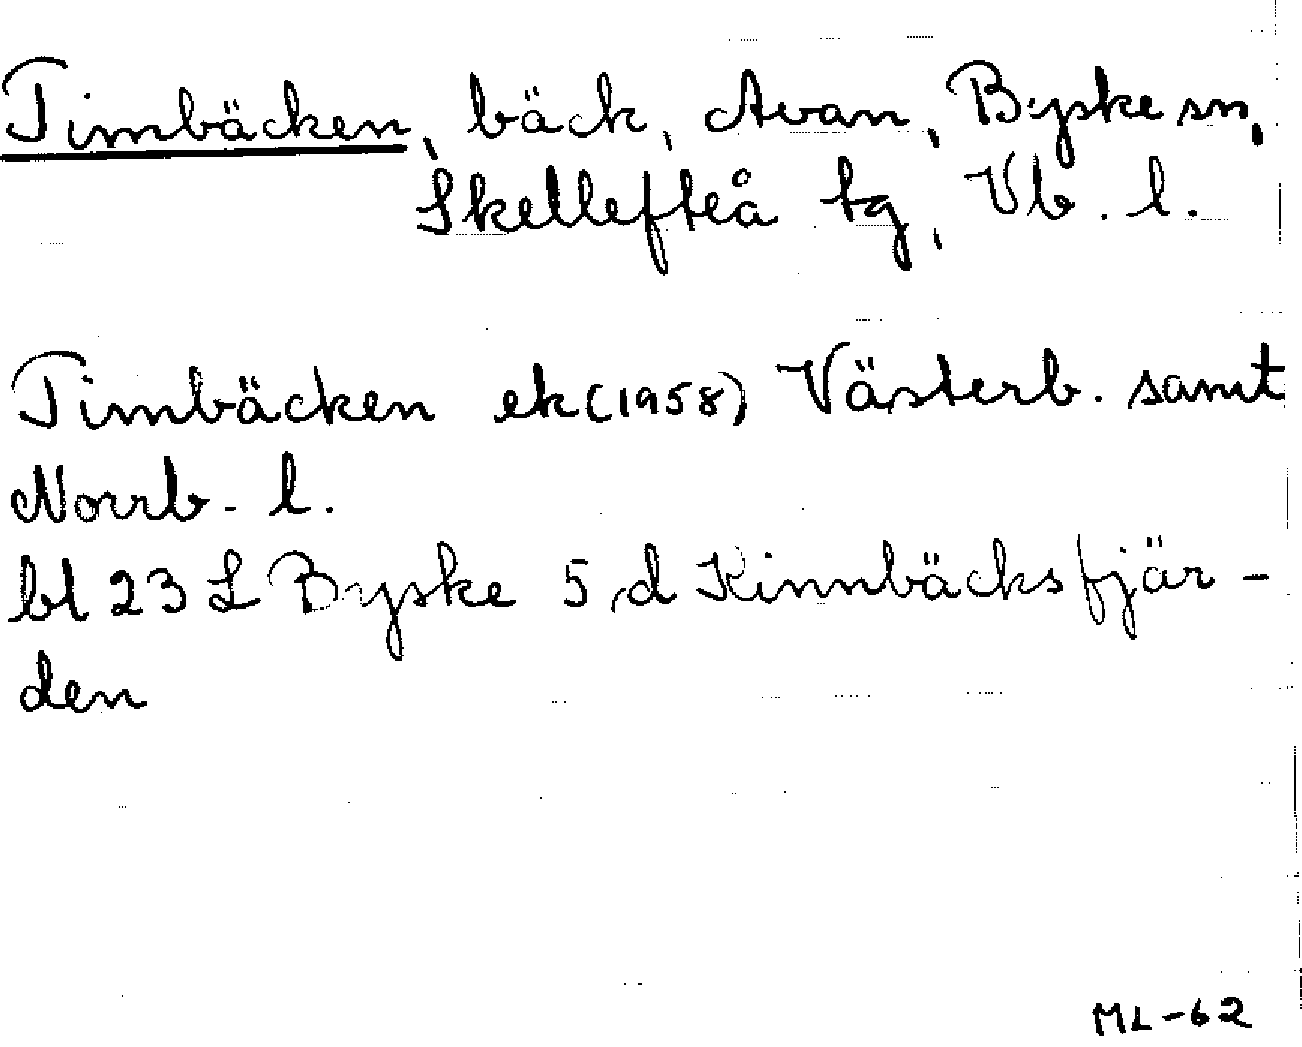 Timbäcken, bäck, Avan, Byske sn,
Skellefteå tg, Vb. l.
Timbäcken ek (1958) Västerb. samt
Norrb. l.
bl 23 L Byske 5 d Kinnbäcksfjär-
den
ML-62